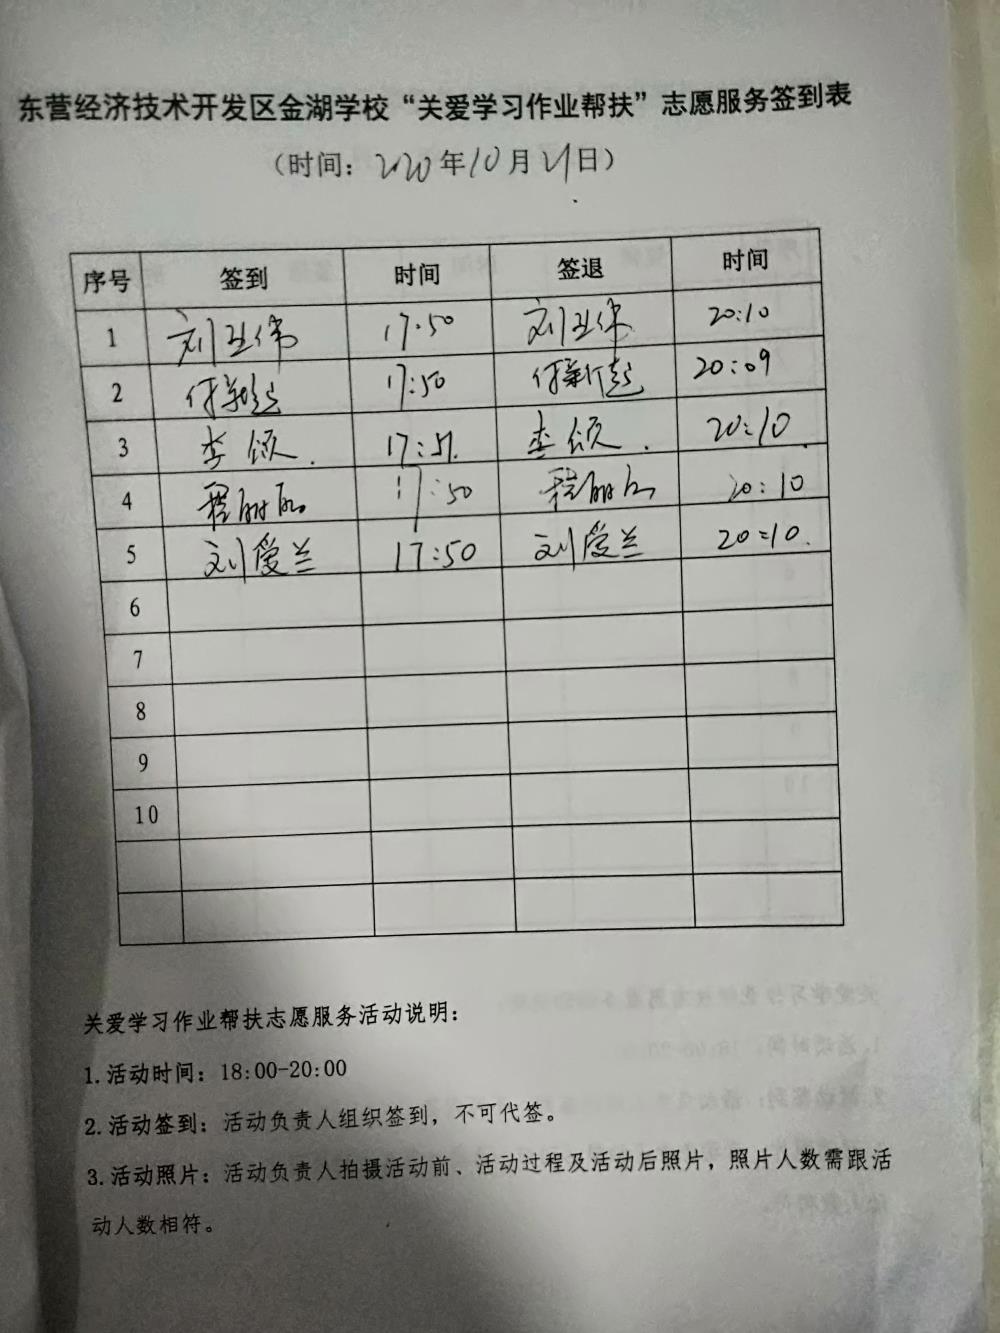 东营经济技术开发区金湖学校“关爱学习作业帮扶”志愿服务签到表
（时间：2020年10月21日）
序号 签到 时间 签退 时间
1 刘卫伟 17:50 刘卫伟 20:10
2 17:50 20:09
3 李颂. 17:51. 李颂. 20:10.
4 程丽 17:50 程丽 20:10
5 刘爱兰 17:50 刘爱兰 20:10.
6
7
8
9
10
关爱学习作业帮扶志愿服务活动说明：
1.活动时间：18:00-20:00
2.活动签到：活动负责人组织签到，不可代签。
3.活动照片：活动负责人拍摄活动前、活动过程及活动后照片，照片人数需跟活
动人数相符。